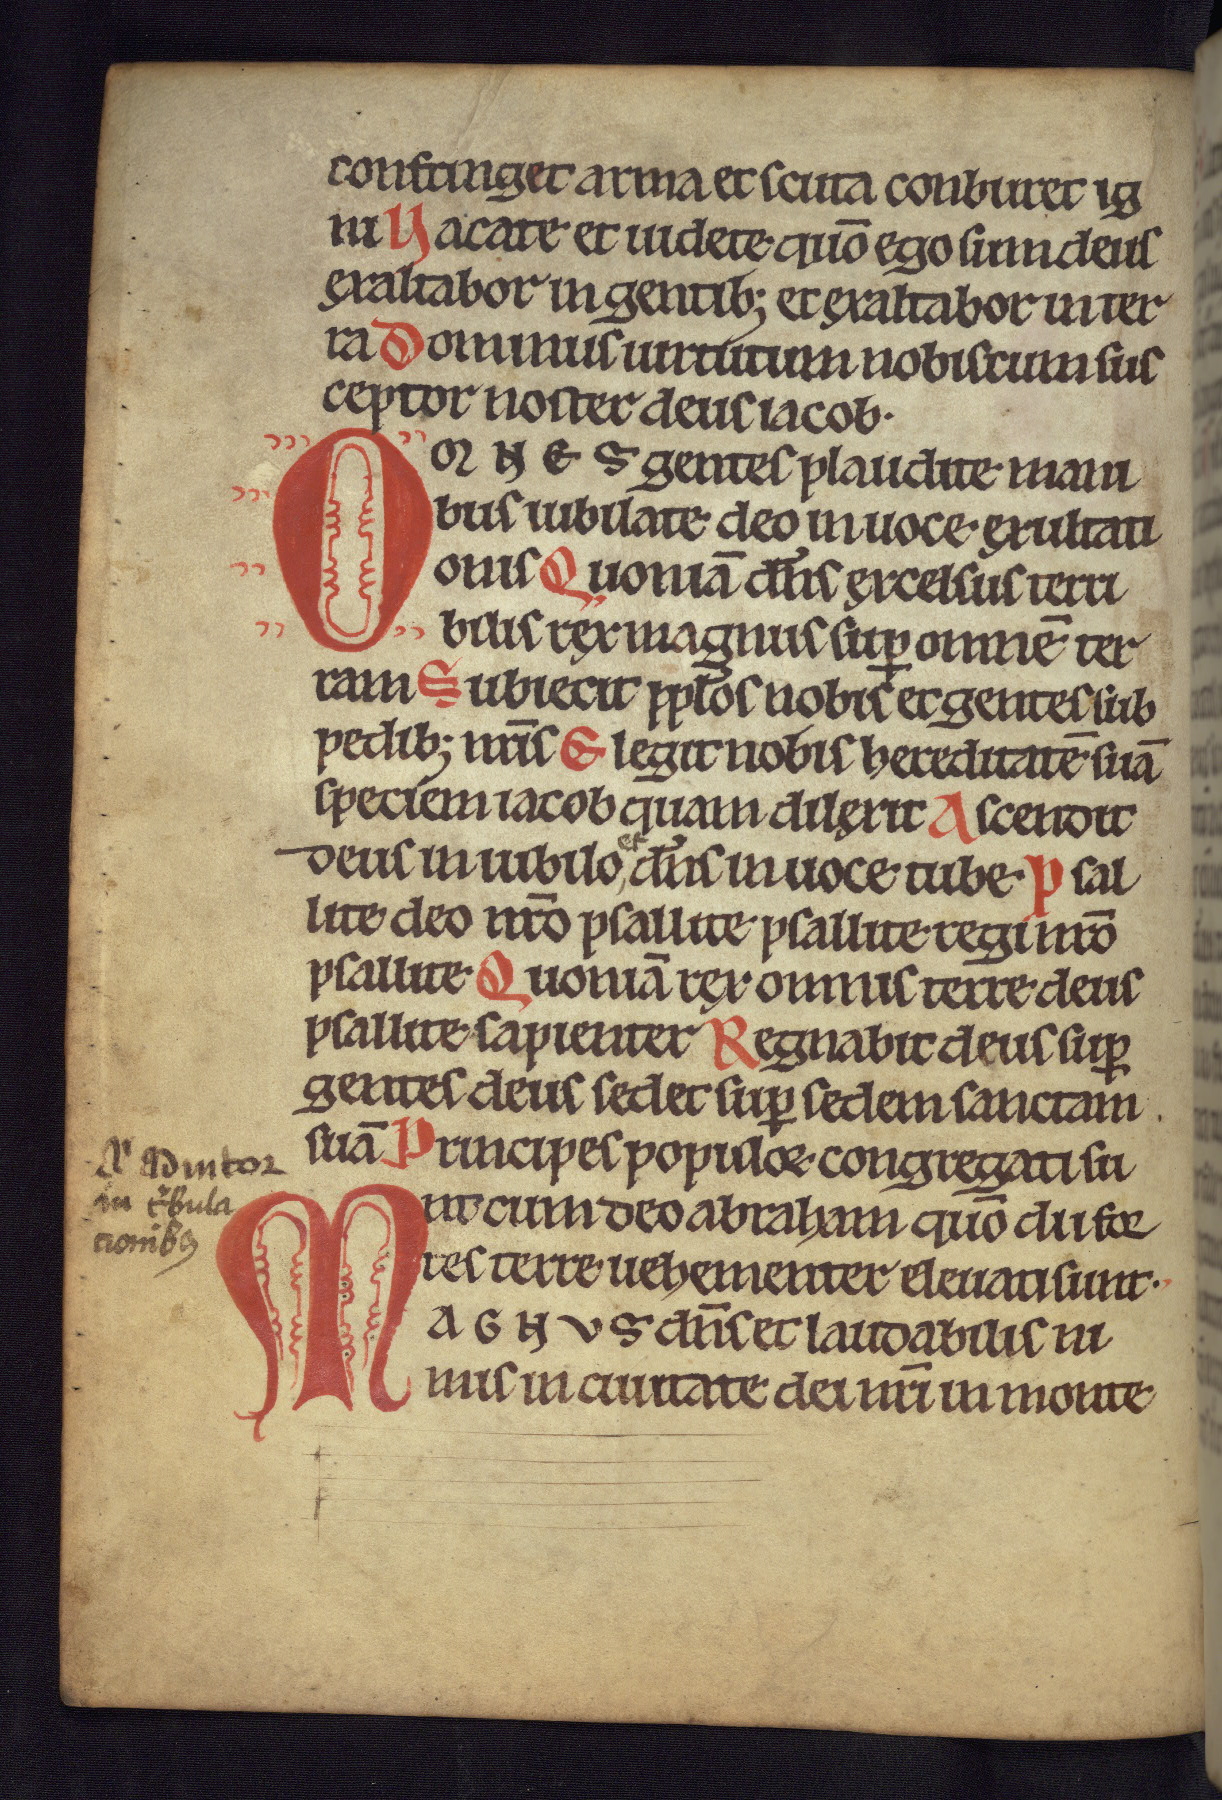 confringet arma et scuta conburet ig
ni Vacate et uidete quō ego sum deus
exaltabor in gentib; et exaltabor in ter
ra Dominus uirtutum nobiscum sus
ceptor noster deus iacob.
OMNES gentes plaudite mani
bus iubilate deo in uoce exultati
onis Quoniā dn̄s excelsus terri
bilis rex magnus suꝑ omnē ter
ram Subiecit pplōs nobis et gentes sub
pedib; nr̄is Elegit nobis hereditatē suā
speciem iacob quam dilexit Ascendit
deus in iubilo et dn̄s in uoce tube. Psal
lite deo nr̄o psallite psallite regi nr̄o
psallite Quoniā rex omnis terre deus
psallite sapienter Regnabit deus suꝑ
gentes deus sedet suꝑ sedem sanctam
suā Principes populoꝝ congregati su
nt cum deo abraham quō dii for
tes terre uehementer eleuati sunt.
MAGNVS dn̄s et laudabilis ni
mis in ciuitate dei nr̄i in monte
Adiutor
in t̄bula
tionibꝰ